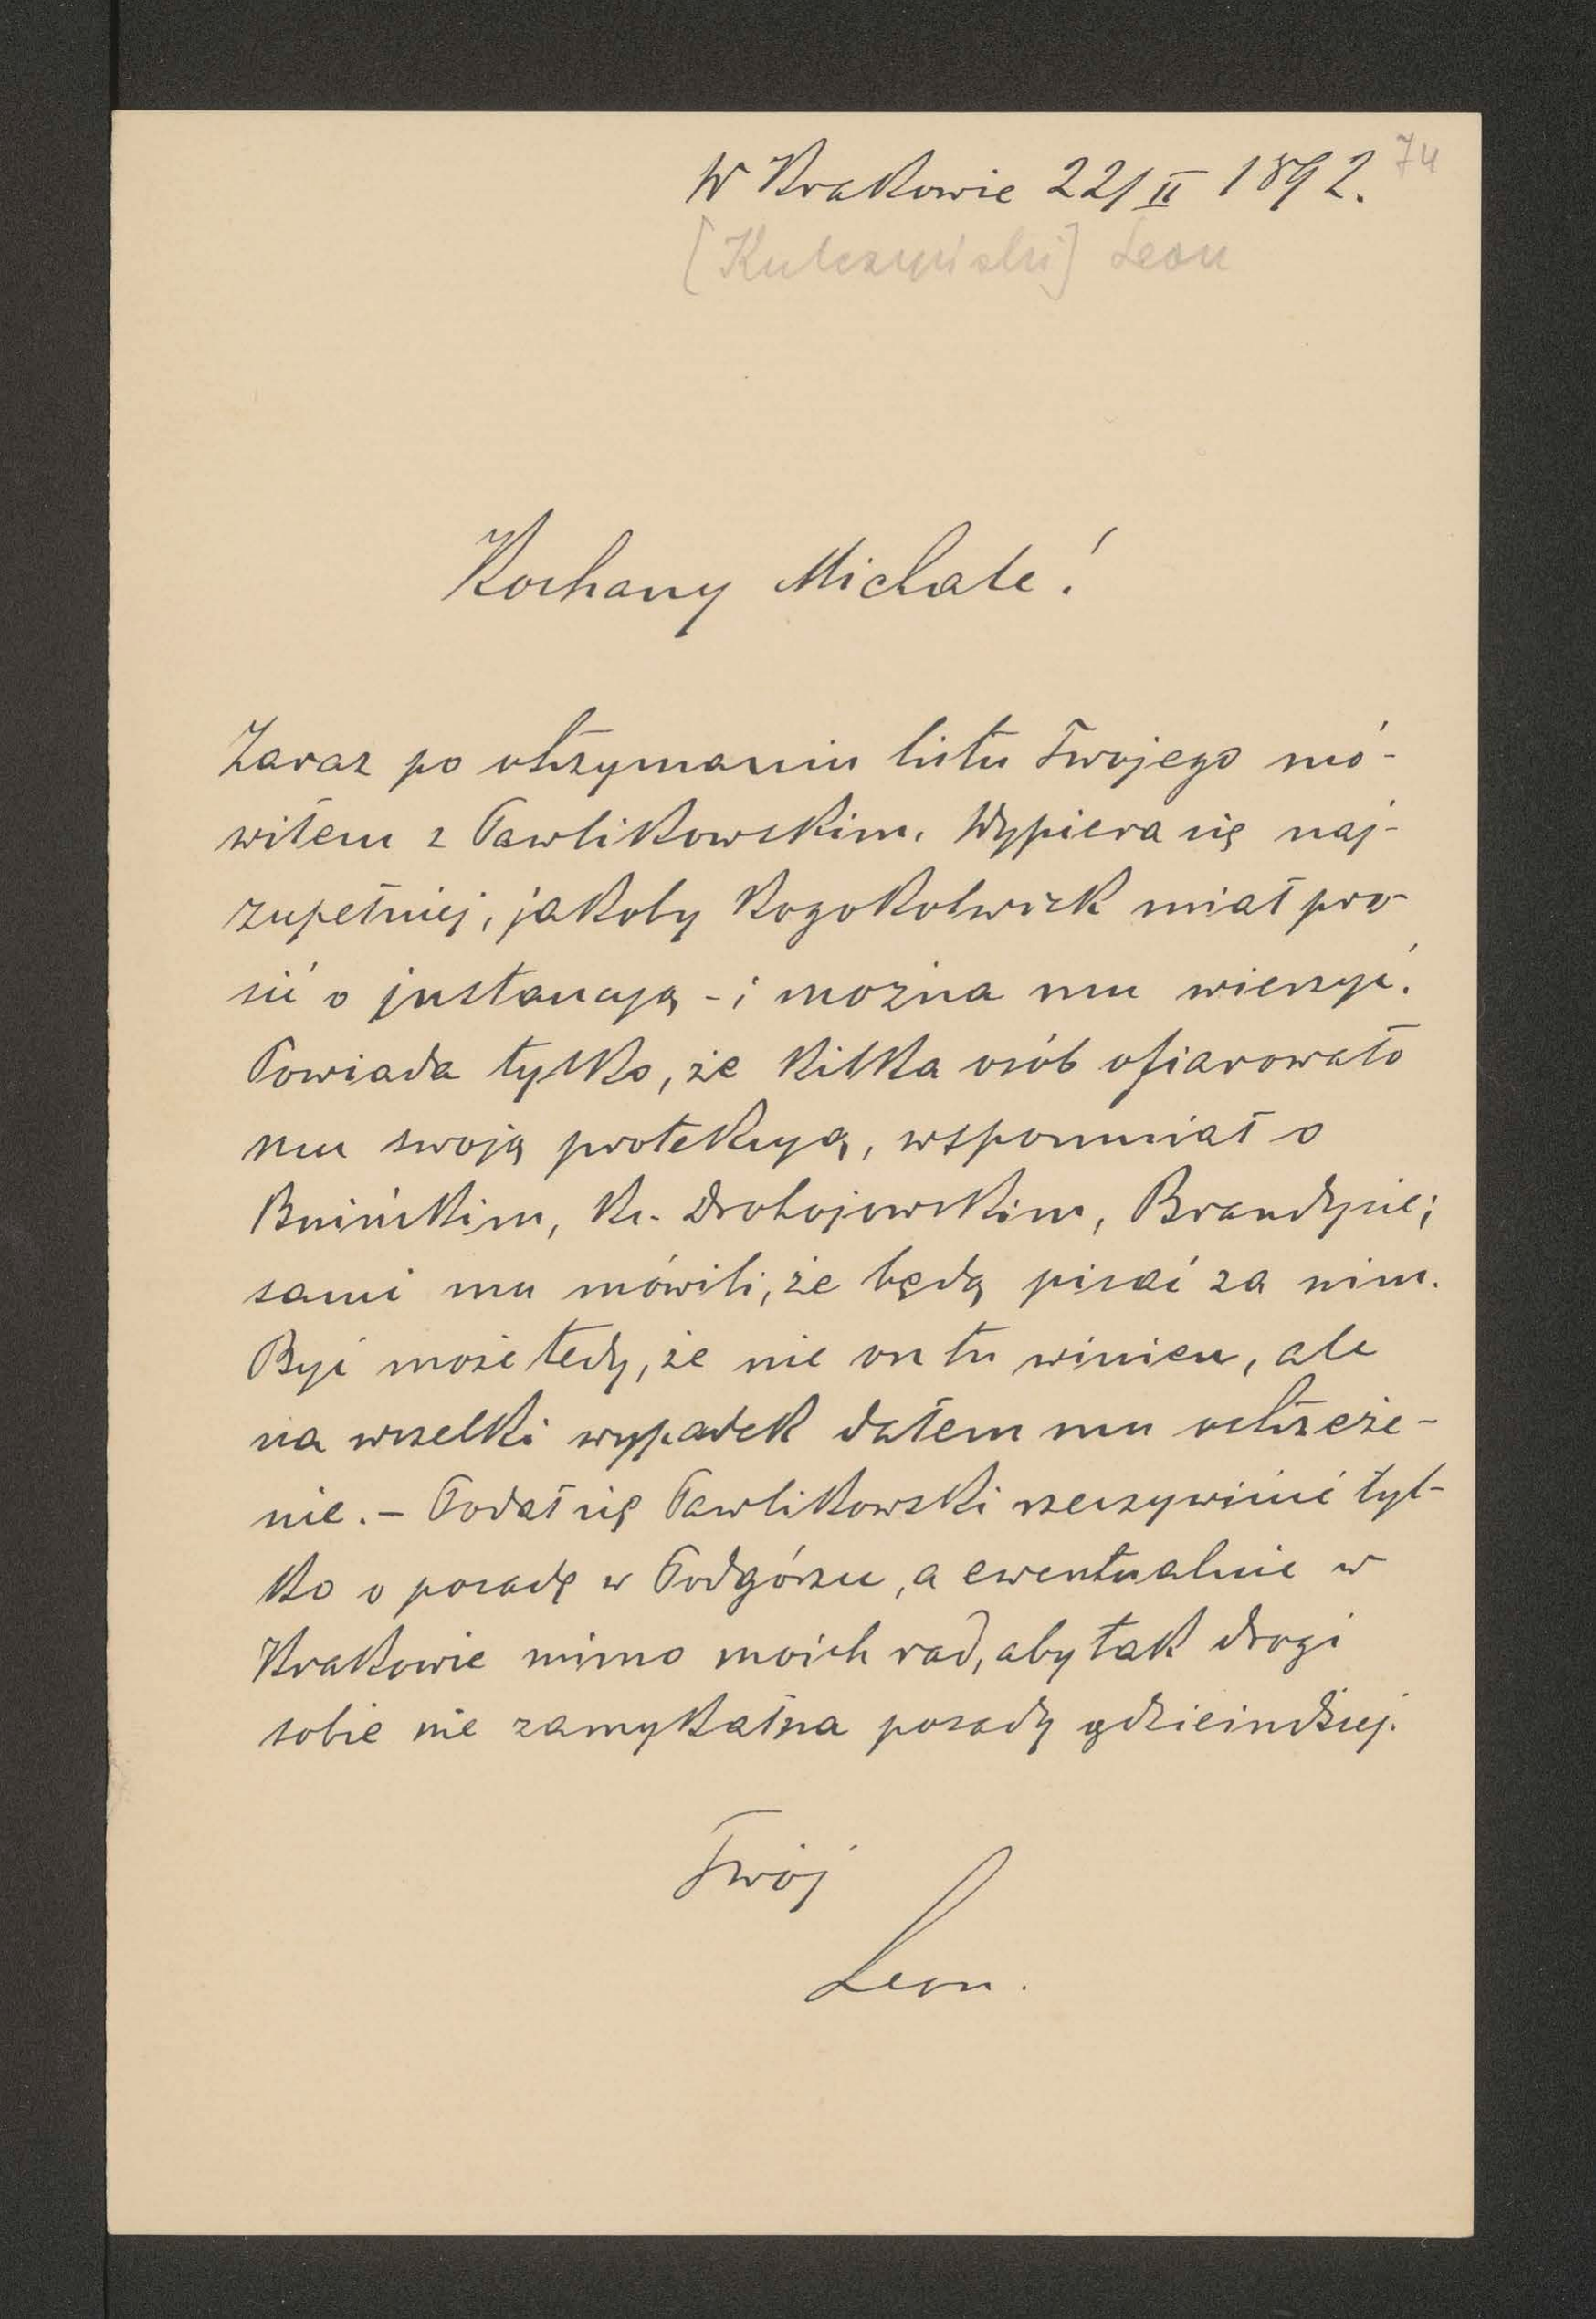 74
W Krakowie 22/II 1892.
[Kulczyński] Leon
Kochany Michale!
Zaraz po otrzymaniu listu Twojego mó-
wiłem z Pawlikowskim. Wypiera się naj-
zupełniej, jakoby kogokolwiek miał pro-
sić o instancyą - i można mu wierzyć.
Powiada tylko, że kilka osób ofiarowało
mu swoją protekcyą, wspomniał o
Bnińskim, ks. Drohojowskim, Brandysie;
sami mu mówili, że będą pisać za nim.
Być może tedy, że nie on tu winien, ale
na wszelki wypadek dałem mu ostrzeże-
nie. - Podał się Pawlikowski rzeczywiście tyl-
ko o posadę w Podgórzu, a ewentualnie w
Krakowie mimo moich rad, aby tak drogi
sobie nie zamykał na posady gdzieindziej.
Twój
Leon.